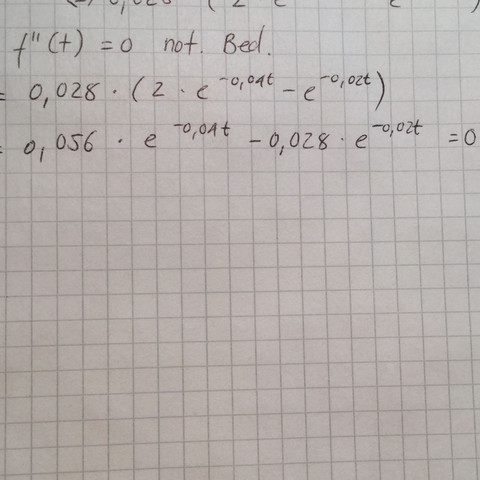 0,028 (2 e e )
f''(t) = 0 not. Bed.
= 0,028 · (2 · e^-0,04t - e^-0,02t)
= 0,056 · e^-0,04t - 0,028 · e^-0,02t = 0